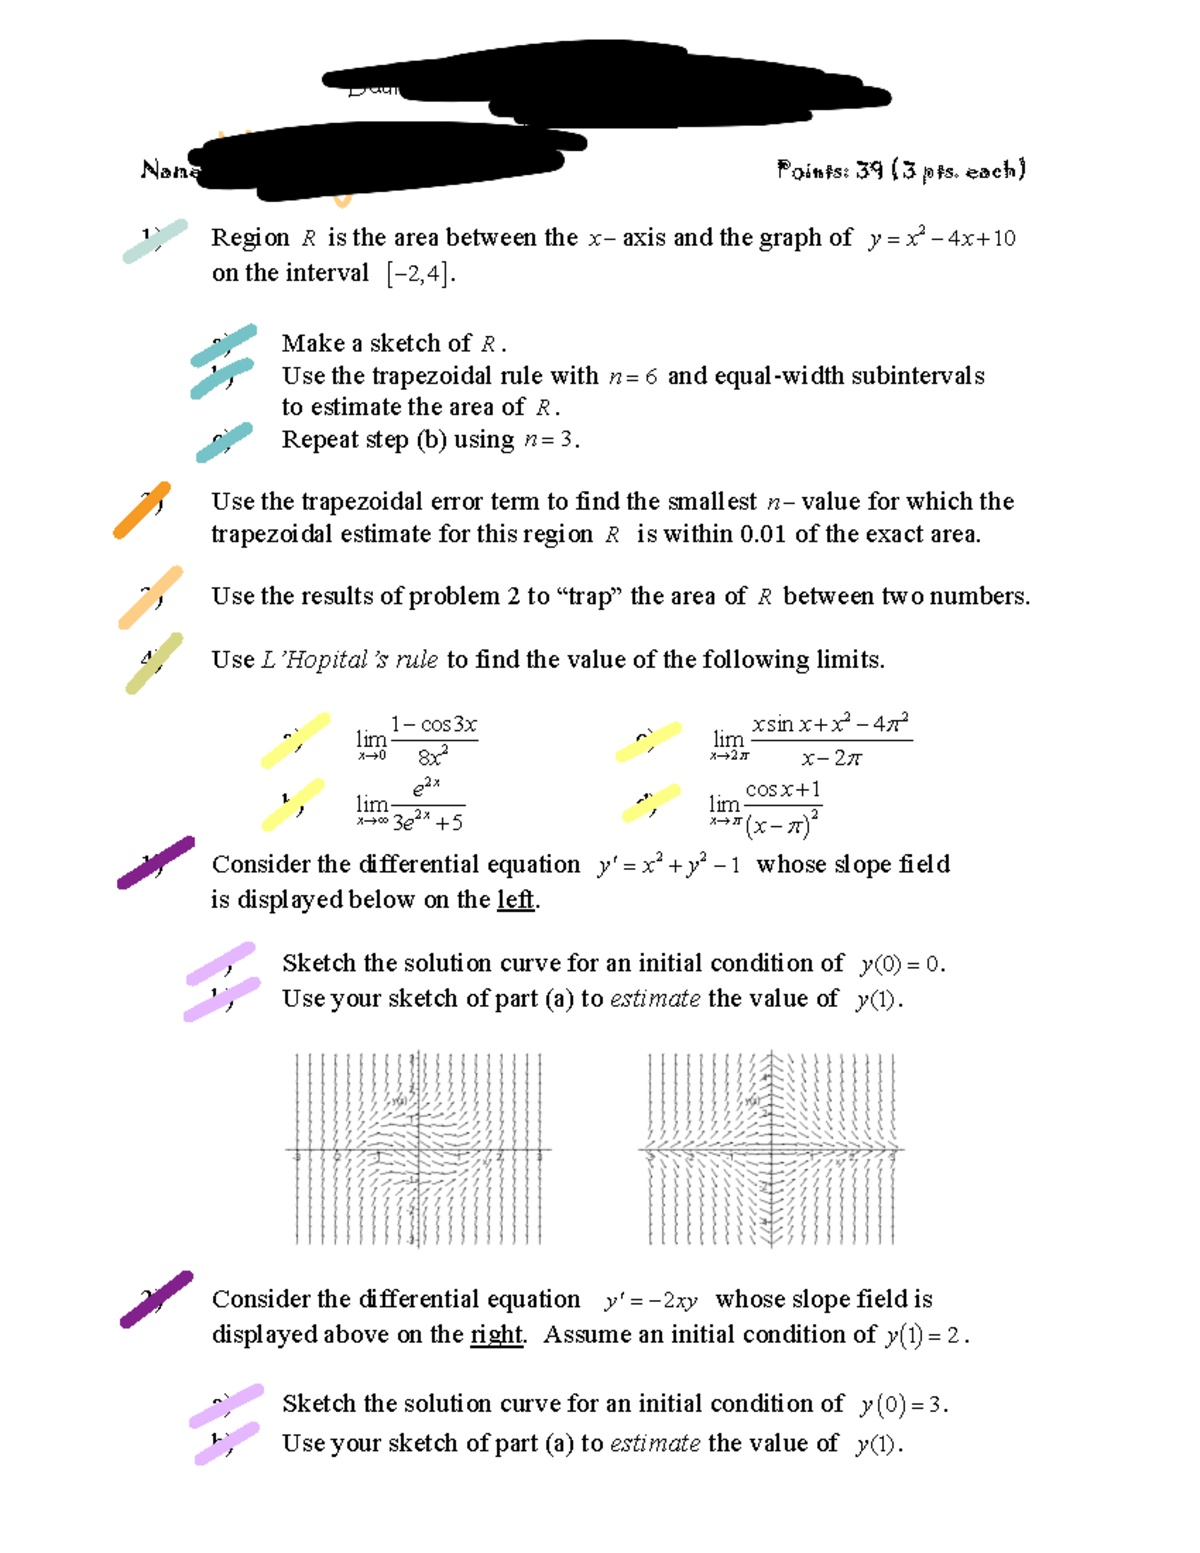 Points: 39 (3 pts. each)
Region R is the area between the x – axis and the graph of y = x² – 4x+10
on the interval [–2,4].
Make a sketch of R.
Use the trapezoidal rule with n = 6 and equal-width subintervals
to estimate the area of R.
Repeat step (b) using n = 3.
Use the trapezoidal error term to find the smallest n – value for which the
trapezoidal estimate for this region R is within 0.01 of the exact area.
Use the results of problem 2 to “trap” the area of R between two numbers.
Use L’Hopital’s rule to find the value of the following limits.
lim x→0 (1 – cos3x)/(8x²) lim x→2π (x sin x + x² – 4π²)/(x – 2π)
lim x→∞ e^(2x)/(3e^(2x) + 5) lim x→π (cos x + 1)/(x – π)²
Consider the differential equation y′ = x² + y² – 1 whose slope field
is displayed below on the left.
Sketch the solution curve for an initial condition of y(0) = 0.
Use your sketch of part (a) to estimate the value of y(1).
Consider the differential equation y′ = –2xy whose slope field is
displayed above on the right. Assume an initial condition of y(1) = 2.
Sketch the solution curve for an initial condition of y(0) = 3.
Use your sketch of part (a) to estimate the value of y(1).